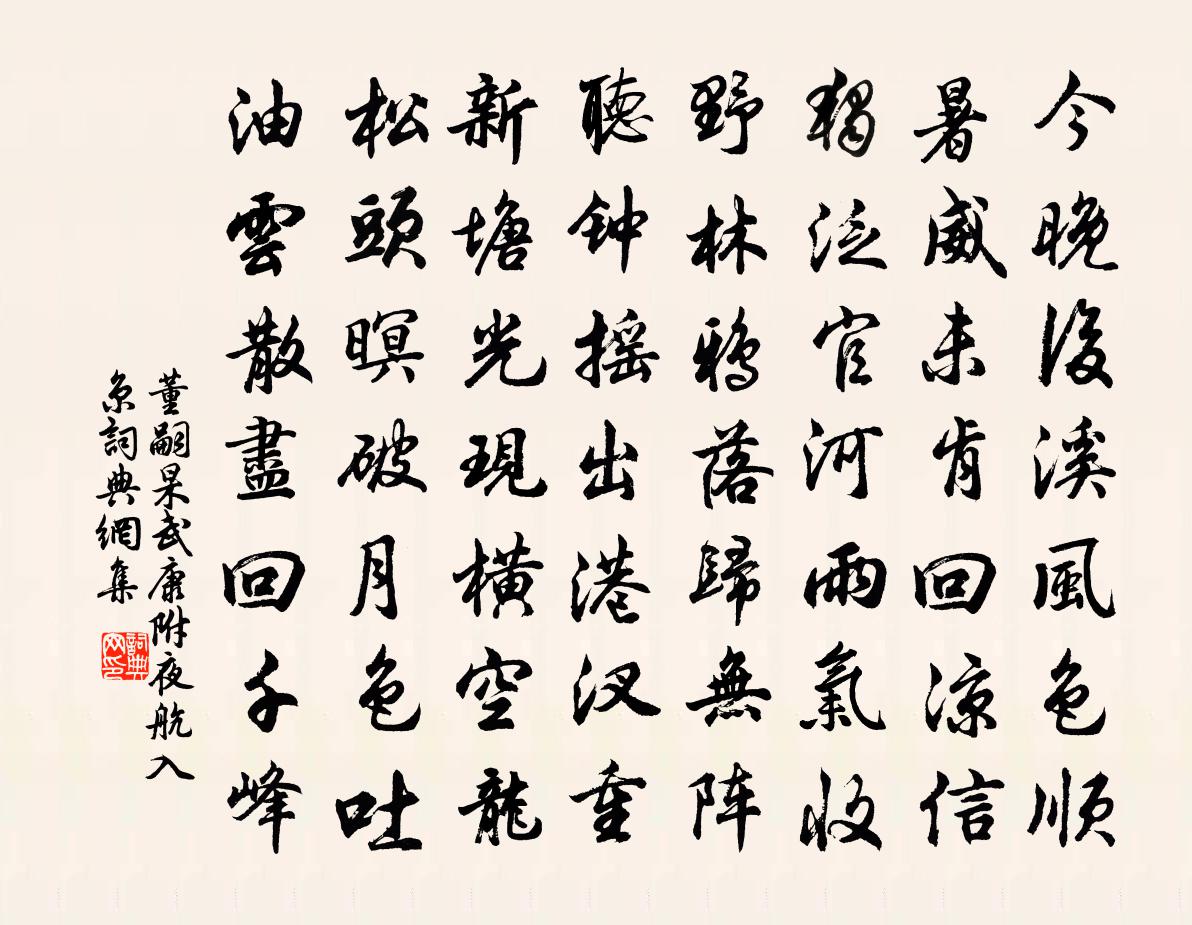 今晚後溪風色順
暑威未肯回涼信
獨泛官河雨氣收
野林鴉落歸無陣
聽钟摇出港汊重
新塘光現橫空龍
松頭暝破月色吐
油雲散盡回千峰
董嗣杲武康附夜航入
京詞典網集
詞典
网印